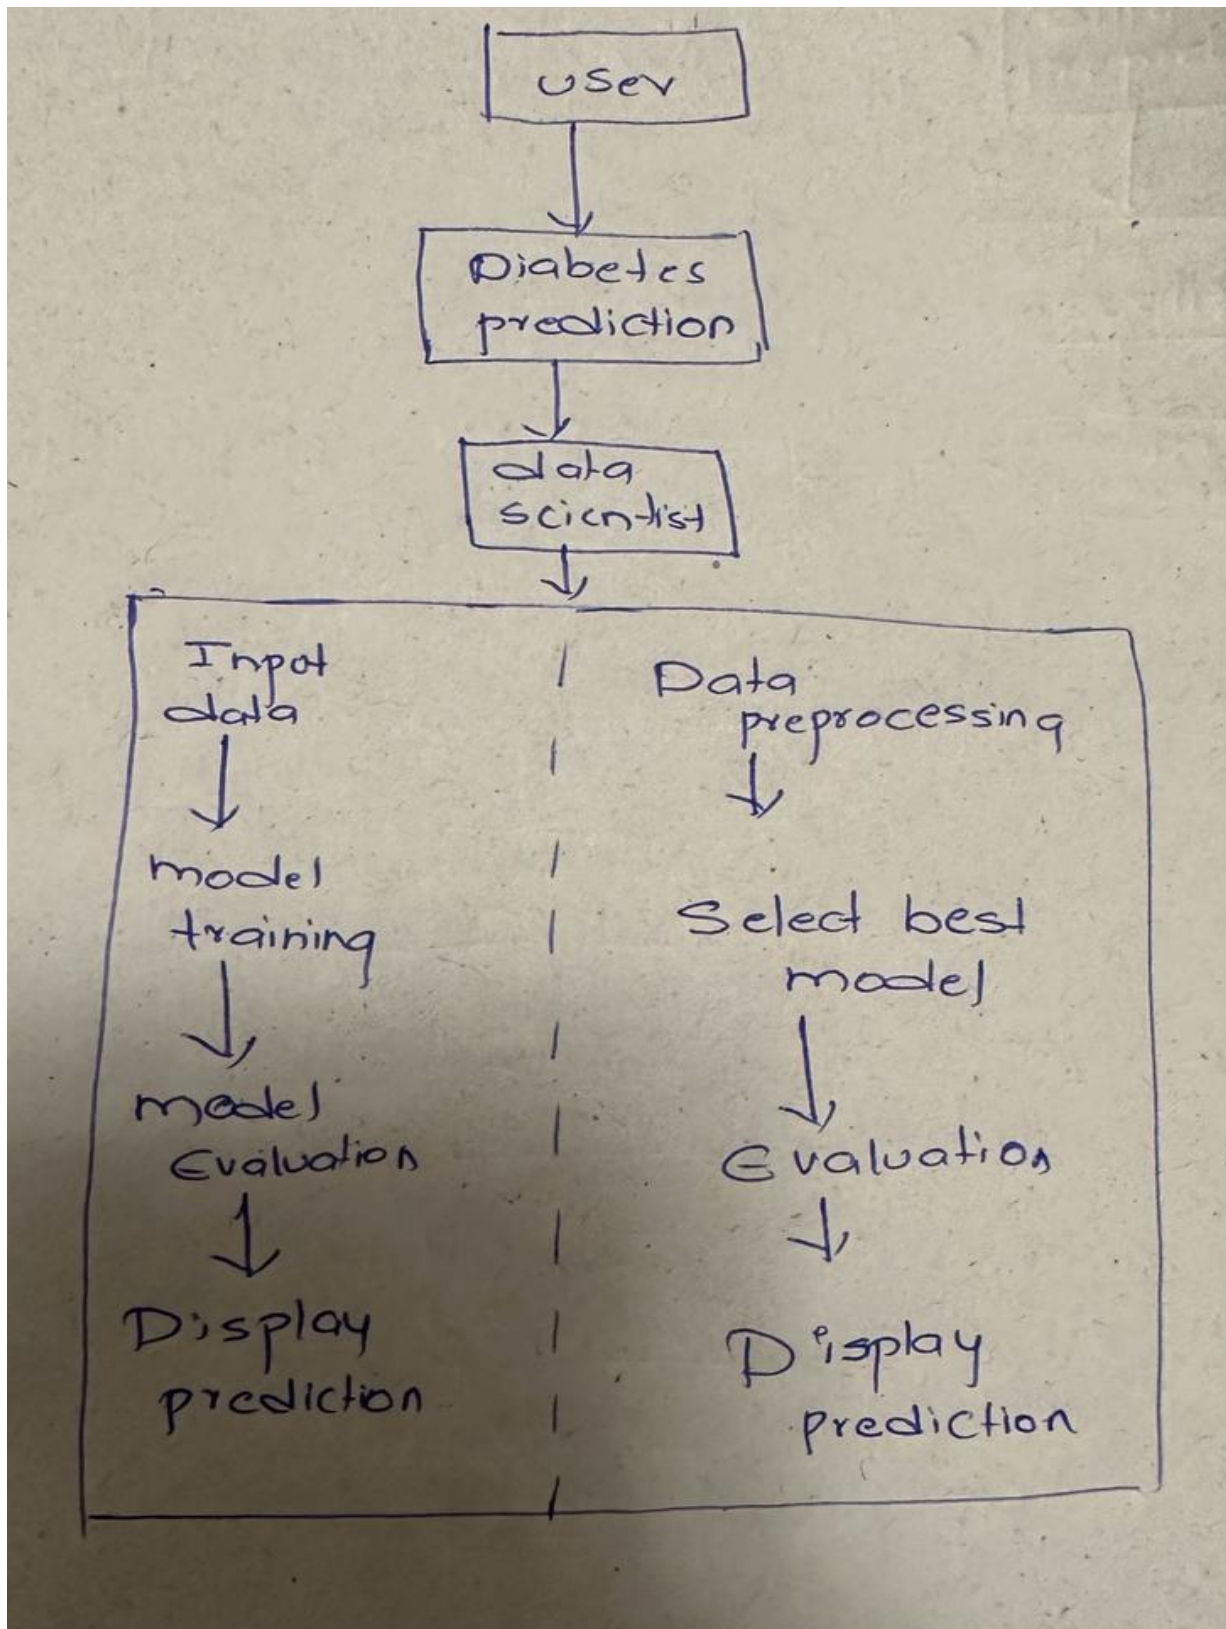 user
Diabetes
prediction
data
scientist
Input
data
model
training
model
Evaluation
Display
prediction
Data
preprocessing
Select best
model
Evaluation
Display
prediction